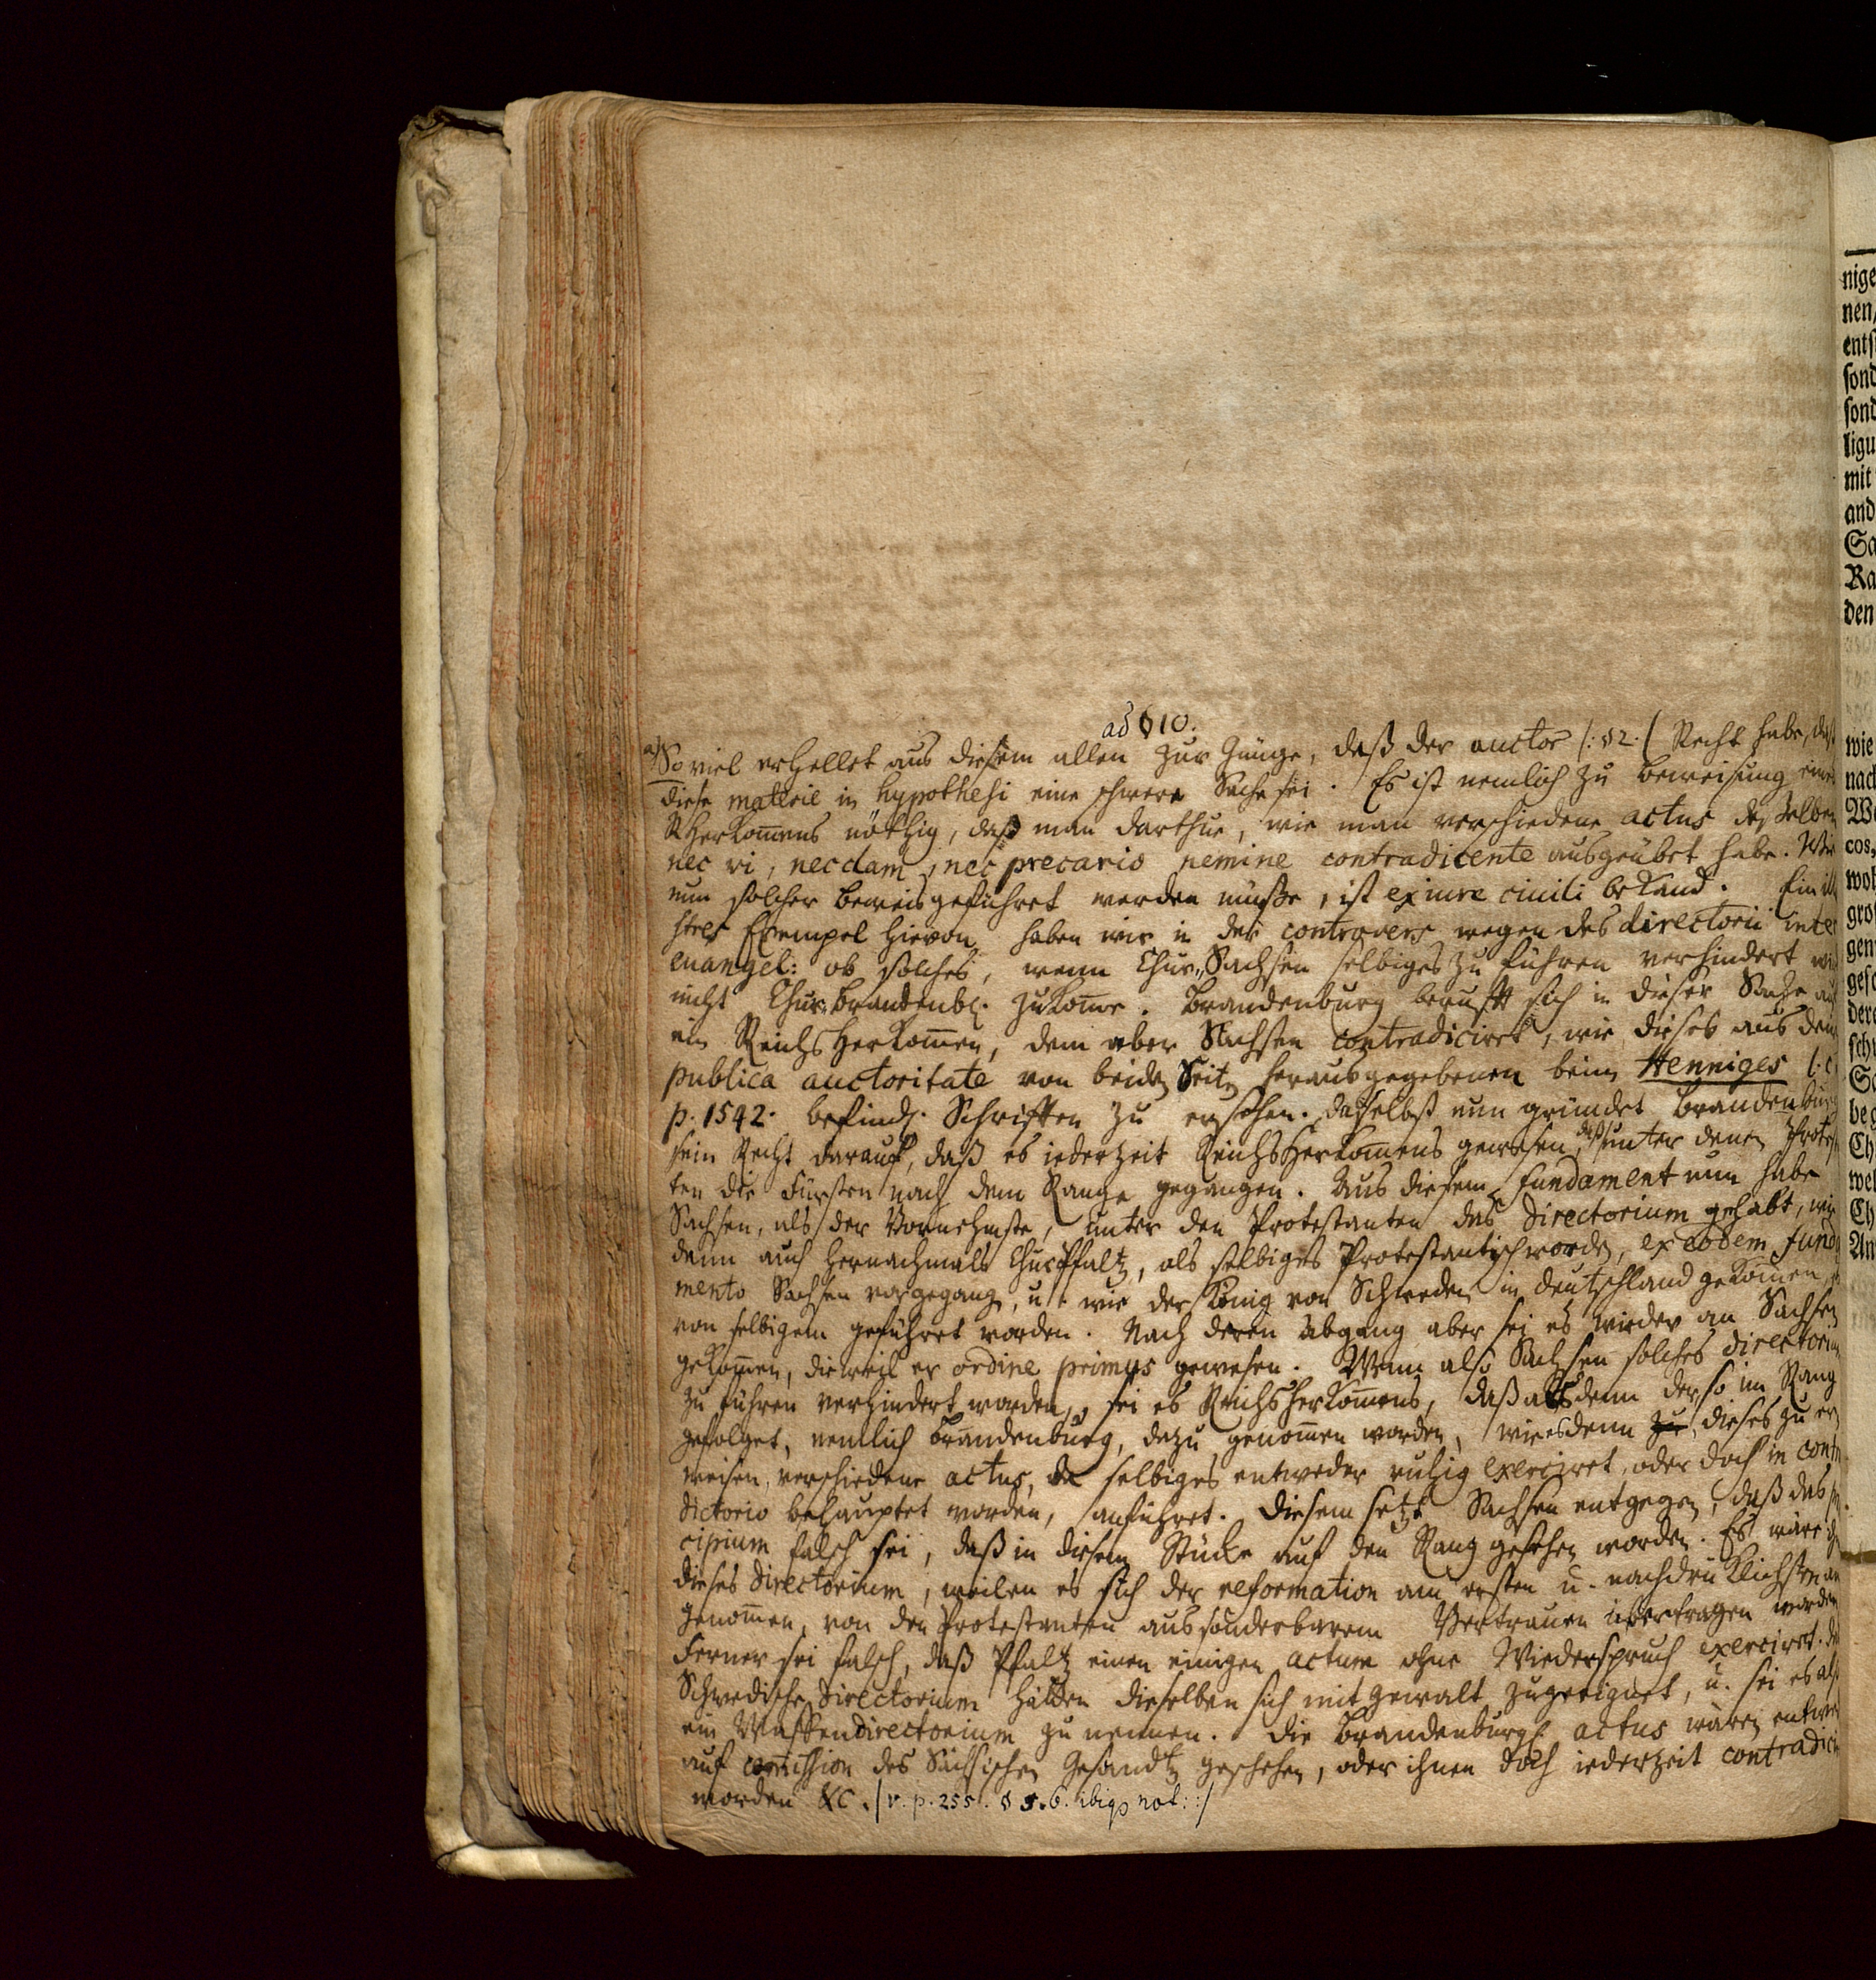 ad § 10.
a) So viel erhellet aus diesem allen zur Gnüge, daß der auctor /: § 2. / Recht habe, daß
diese materie in hypothesi eine schwere Sache sei. Es ist nemlich zu beweisung eines
RHerkom̅ens nöthig, daß man darthue, wie man verschiedene actus desselben
nec vi, nec clam, nec precario nemine contradicente ausgeübet habe. Wie
nun solcher beweis geführet werden müße, ist ex iure civili bekand. Ein
Exempel hievon haben wir in der controvers wegen des directorii inter
euangel: ob solches, wenn Chur-Sachsen selbiges zu führen verhindert wird
nicht Chur-brandenb. zukom̅e. Brandenburg berufft sich in dieser Sache auf
ein Reichs Herkom̅en, dem aber Sachsen contradiciret, wie dieses aus denen
publica auctoritate von beiden Seiten herausgegebenen beim Henniges l. c.
p. 1542. befindl. Schrifften zu ersehen. daselbst nun gründet brandenburg
sein Recht darauf, daß es iederzeit ReichsHerkom̅ens gewesen, daß unter denen Protestan
ten die Fürsten nach dem Range gegangen. Aus diesem fundament nun habe
Sachsen, als der Vornehmste, unter den Protestanten das Directorium gehabt, wie
denn auch hernachmals ChurPfaltz, als selbiges Protestantisch worden, ex eodem funda
mento Sachsen vorgegangen, u. wie der König von Schweden in Deutschland gekom̅en,
von selbigem geführet worden. Nach deren abgang aber sei es wieder an Sachsen
gekom̅en, dieweil er ordine primus gewesen. Wenn also Sachsen solches directorium
zu führen verhindert worden, sei es ReichsHerkom̅ens, daß alsdenn der so im Rang
gefolget, nemlich brandenburg, dazu genom̅en worden, wie es denn dieses zu er
weisen, verschiedene actus, da selbiges entweder ruhig exerciret, oder doch in contra
dictorio behauptet worden, anführet. Diesem setzt Sachsen entgegen, daß das prin
cipium falsch sei, daß in diesem Stücke auf den Rang gesehen worden. Es wäre ihm
dieses Directorium, weilen es sich der reformation am ersten u. nachdrücklichsten an
genom̅en, von den Protestanten aus sonderbarem Vertrauen übertragen worden
Ferner sei falsch, daß Pfaltz einen einigen actum ohne Wiederspruch exerciret.
Schwedische Directorium hätten dieselben sich mit gewalt zugeeignet, u. sei es also
ein Waffendirectorium zu nennen. Die brandenburgl. actus wären entweder
auf comission des Sächsischen Gesandten geschehen, oder ihnen doch iederzeit contradicirt
worden &c. / v. p. 255. § 5. 6. ibiq. not: :/
nige
nen,
entf
sond
sond
ligu
mit
and
Sa
Ra
den
wie
nach
We
cos,
wol
gros
gen
gesc
dere
schr
Sc
beg
Ch
wel
Ch
An